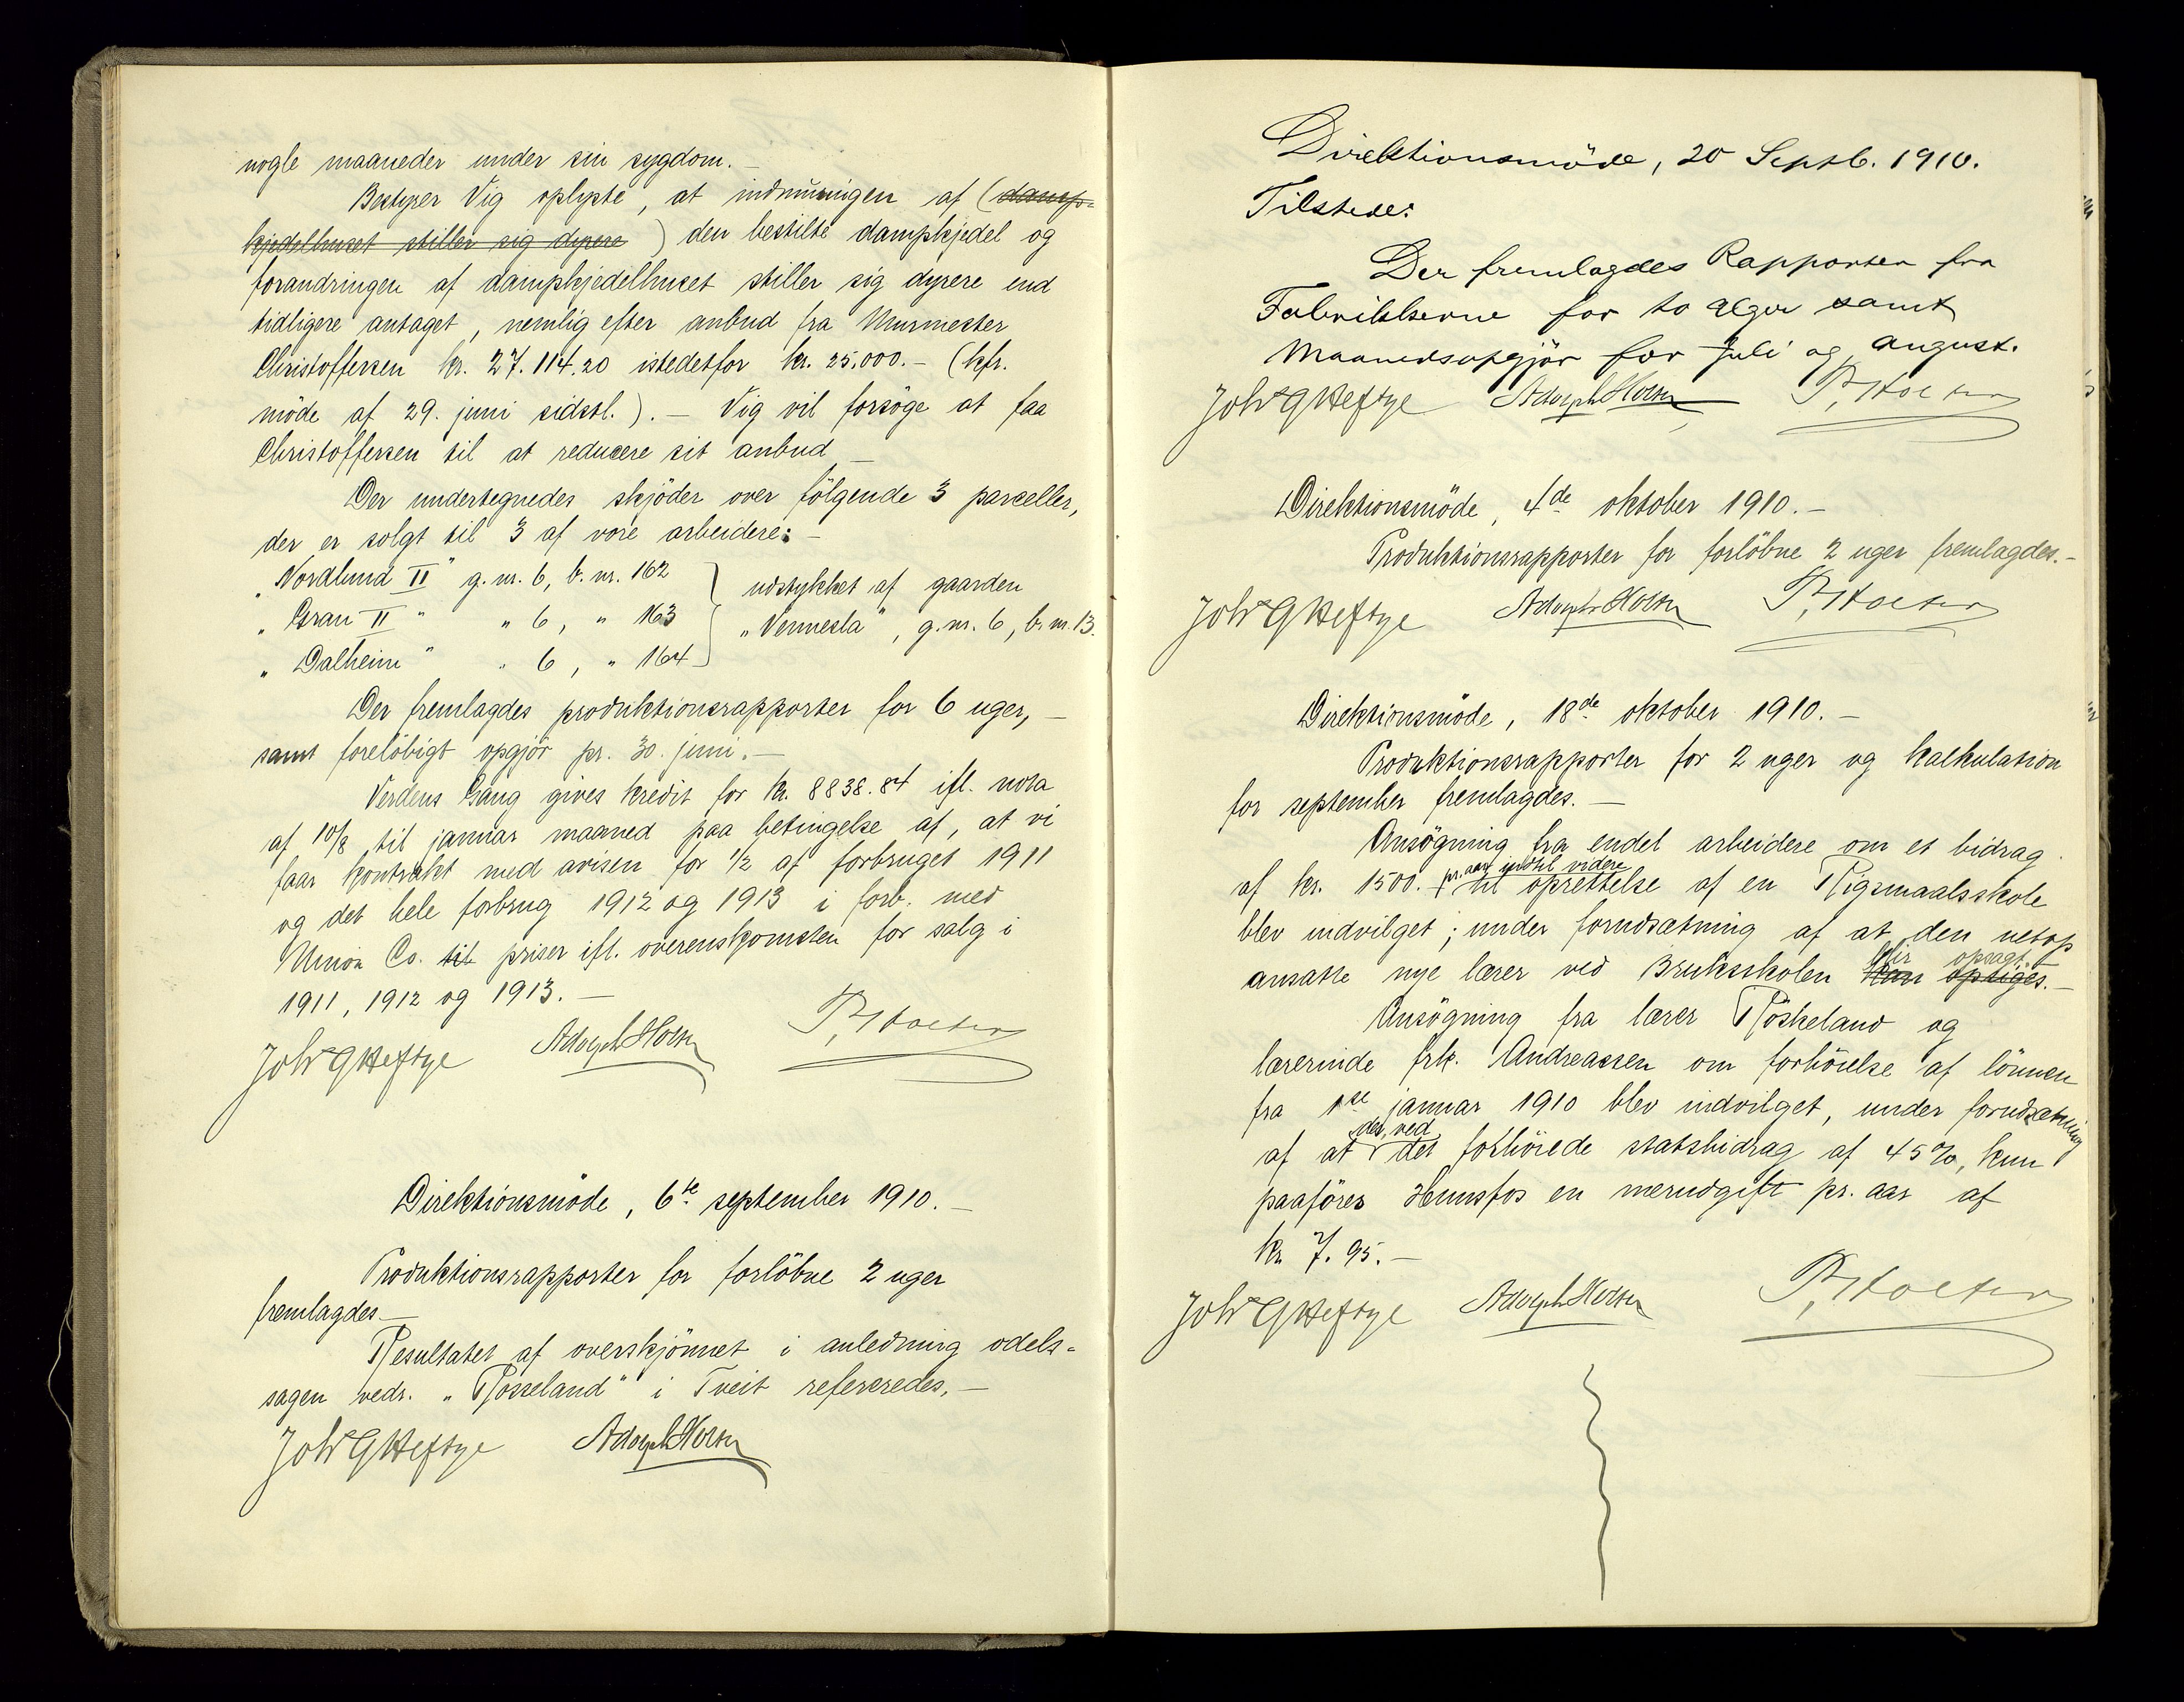 nogle maaneder under sin sygdom. —
Bestyrer Vig oplyste, at indmuringen af (damp-
kjedelhuset stiller sig dyrere) den bestilte dampkjedel og
forandringen af dampkjedelhuset stiller sig dyrere end
tidligere antaget, nemlig efter anbud fra Murmester
Christoffersen kr. 27.114.20 istedetfor kr. 25.000.– (kfr.
möde af 29. juni sidstl.). — Vig vil forsöge at faa
Christoffersen til at reducere sit anbud —
Der undertegnedes skjöder over fölgende 3 parceller,
der er solgt til 3 af vore arbeidere: –
„Nordlund II" g. nr. 6, b. nr. 162
„Gran II " „ 6, „ 163
„Dalheim " „ 6, „ 164
udstykket af gaarden
„Vennesla", g. nr. 6, b. nr. 13.
Der fremlagdes produktionsrapporter for 6 uger, –
samt forelöbigt opgjör pr. 30. juni. —
Verdens Gang gives kredit for kr. 8838.84 ifl. nota
af 10/8 til januar maaned paa betingelse af, at vi
faar kontrakt med avisen for 1/2 af forbruget 1911
og det hele forbrug 1912 og 1913 i forb. med
Union Co. til priser ifl. overenskomsten for salg i
1911, 1912 og 1913. —
Joh G Heftye Adolph Holm P. Holter
Direktionsmöde, 6te september 1910. —
Produktionsrapporter for forlöbne 2 uger
fremlagdes —
Resultatet af overskjönnet i anledning odels-
sagen vedr. „Rosseland" i Tveit refereredes. —
Joh G Heftye Adolph Holm
Direktionsmöde, 20 Septb. 1910.
Tilstede:
Der fremlagdes Rapporter fra
Fabrikkerne for to Uger samt
Maanedsopgjör for Juli og August.
Joh G Heftye Adolph Holm P. Holter
Direktionsmöde, 4de oktober 1910. –
Produktionsrapporter for forlöbne 2 uger fremlagdes. –
Joh G Heftye Adolph Holm P. Holter
Direktionsmöde, 18de oktober 1910. –
Produktionsrapporter for 2 uger og kalkulation
for september fremlagdes. —
Ansögning fra endel arbeidere om et bidrag
pr. aar indtil videre
af kr. 1500. til oprettelse af en Rigsmaalsskole
blev indvilget; under forudsætning af at den netop
blir opsagt
ansatte nye lærer ved Bruksskolen kan opsiges. –
Ansögning fra lærer Röskeland og
lærerinde frk. Andreassen om forhöielse af lönnen
fra 1ste januar 1910 blev indvilget, under forudsætning
der, ved
af at det forhöiede statsbidrag af 45%, kun
paaföres Hunsfos en merudgift pr. aar af
kr 7.95. –
Joh G Heftye Adolph Holm P. Holter